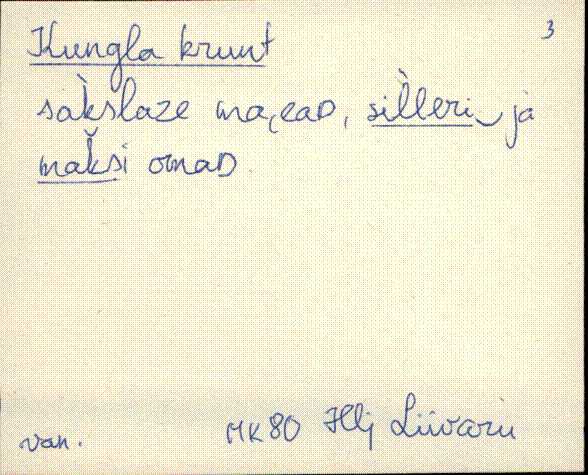 3
Kungla krunt
sàkslaze ma,eaD, sìlleri‿ja
màksi omaD
van. MK80 Hlj Liivaru